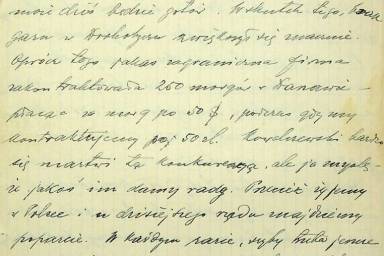 może dziś będzie gotów. Wskutek tego,
gara w Drohobyczu zwiększył się znacznie.
Oprócz tego jakaś zagraniczna firma
zakontraktowała 260 morgów w
płacąc za morg po 50 $, podczas gdy my
kontraktujemy po 50 zł. Kowalewski bardzo
się martwi tą konkurencją, ale ja myślę,
że jakoś im damy radę. Przecież żyjemy
w Polsce i u dzisiejszego rządu znajdziemy
poparcie. W każdym razie, trzeba jeszcze